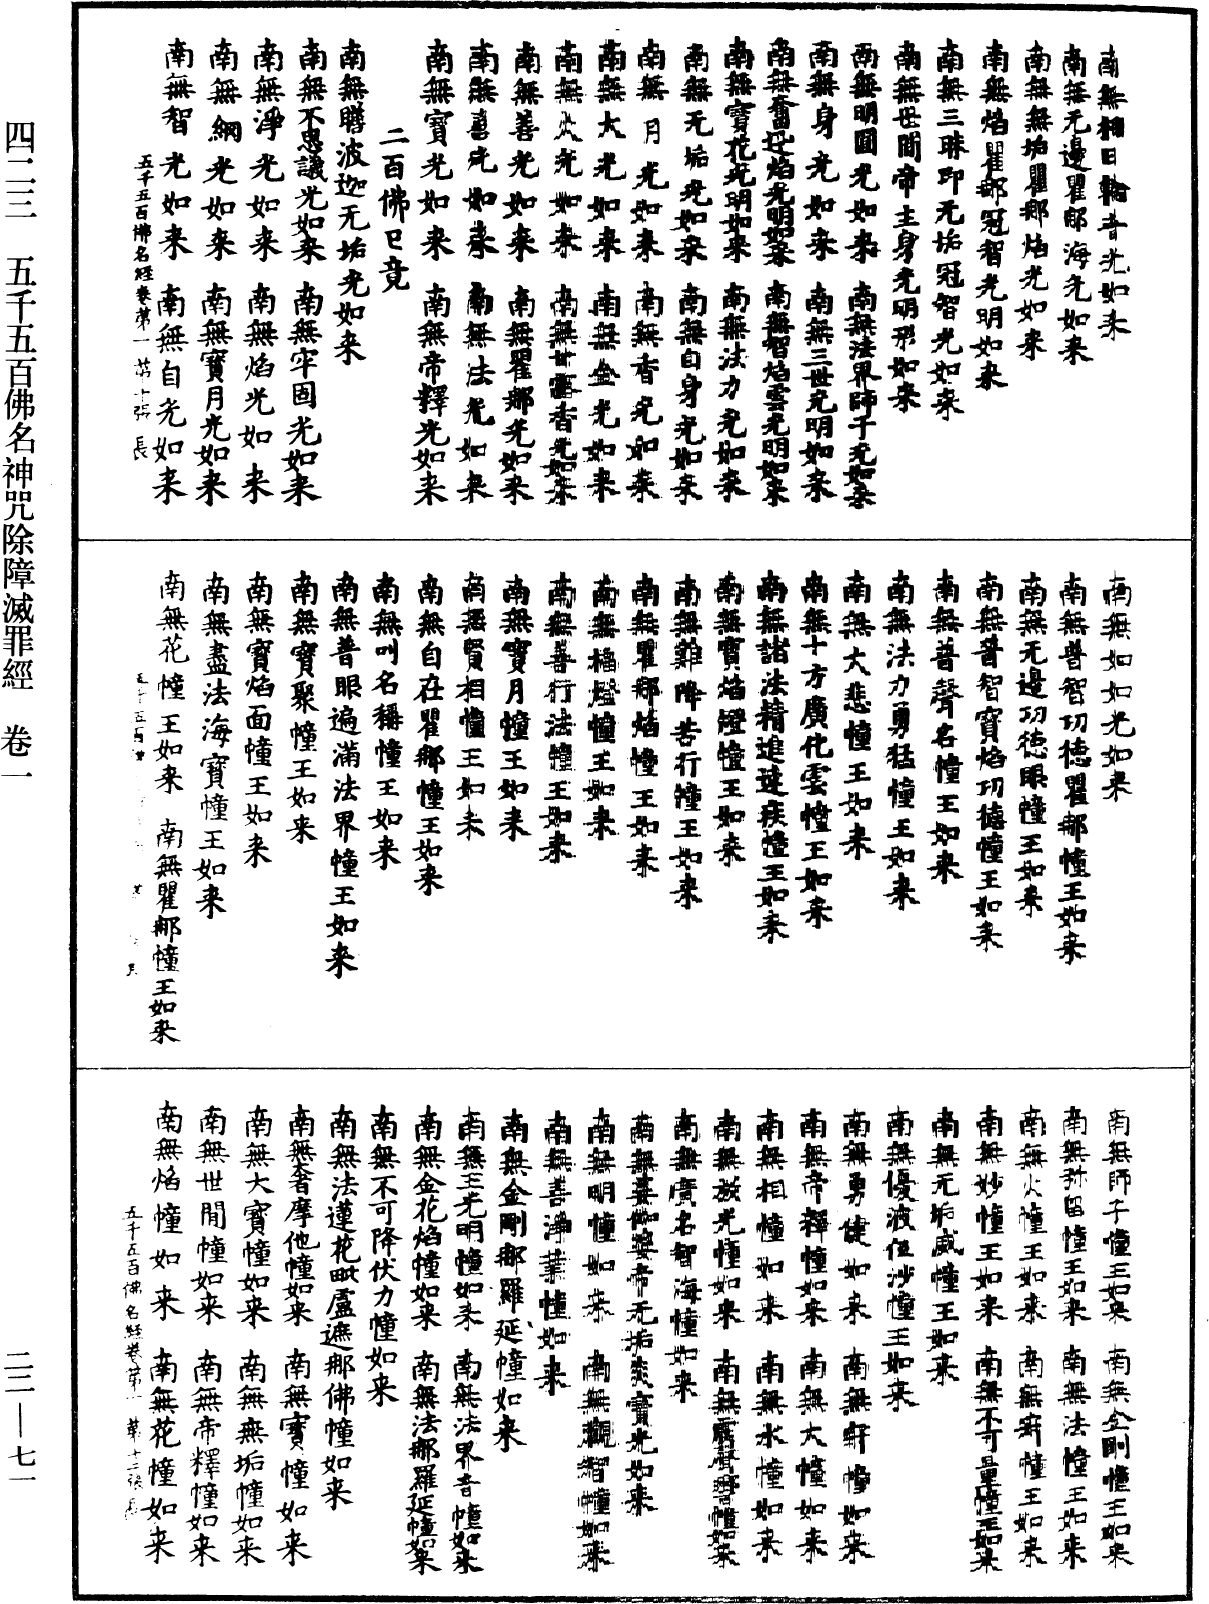 南無相日輪音光如来
南無无邊瞿那海光如来
南無無垢瞿那焰光如来
南無焰瞿那冠智光明如来
南無三昧印无垢冠智光如来
南無世間帝主身光明形如来
南無明圓光如来 南無法界師子光如来
南無身光如来 南無三世光明如来
南無奮迅焰光明如来 南無智焰雲光明如来
南無寶花光明如来 南無法力光如来
南無无垢光如来 南無自身光如来
南無月光如来 南無香光如来
南無大光如来 南無金光如来
南無火光如来 南無甘露香光如来
南無善光如来 南無瞿那光如来
南無喜光如来 南無法光如来
南無寶光如来 南無帝釋光如来
二百佛已竟
南無瞻波迦无垢光如来
南無不思議光如来 南無牢固光如来
南無淨光如来 南無焰光如来
南無網光如来 南無寶月光如来
南無智光如来 南無自光如来
五千五百佛名經卷第一 第十張 長
南無如如光如来
南無普智功德瞿那幢王如来
南無无邊功德眼幢王如来
南無普智寶焰功德幢王如来
南無普聲名幢王如来
南無法力勇猛幢王如来
南無大悲幢王如来
南無十方廣化雲幢王如来
南無諸法精進速疾幢王如来
南無寶焰燈幢王如来
南無難降苦行幢王如来
南無瞿那焰幢王如来
南無福燈幢王如来
南無善行法幢王如来
南無寶月幢王如来
南無賢相幢王如来
南無自在瞿那幢王如来
南無叫名稱幢王如来
南無普眼遍滿法界幢王如来
南無寶聚幢王如来
南無寶焰面幢王如来
南無盡法海寶幢王如来
南無花幢王如来 南無瞿那幢王如来
南無師子幢王如来 南無金剛幢王如来
南無弥留幢王如来 南無法幢王如来
南無火幢王如来 南無幢王如来
南無妙幢王如来 南無不可量幢王如来
南無无垢威幢王如来
南無優波伍沙幢王如来
南無勇健如来 南無幢如来
南無帝釋幢如来 南無大幢如来
南無相幢如来 南無水幢如来
南無放光幢如来 南無震聲幢如来
南無廣名智海幢如来
南無帝无垢寶光如来
南無明幢如来 南無觀智幢如来
南無善淨業幢如来
南無金剛那羅延幢如来
南無王光明幢如来 南無法界音幢如来
南無金花焰幢如来 南無法那羅延幢如来
南無不可降伏力幢如来
南無法蓮花毗盧遮那佛幢如来
南無奢摩他幢如来 南無寶幢如来
南無大寶幢如来 南無無垢幢如来
南無世間幢如来 南無帝釋幢如来
南無焰幢如来 南無花幢如来
五千五百佛名經卷第一 第十二張
四二三 五千五百佛名神咒除障滅罪經 卷一
二二—七一